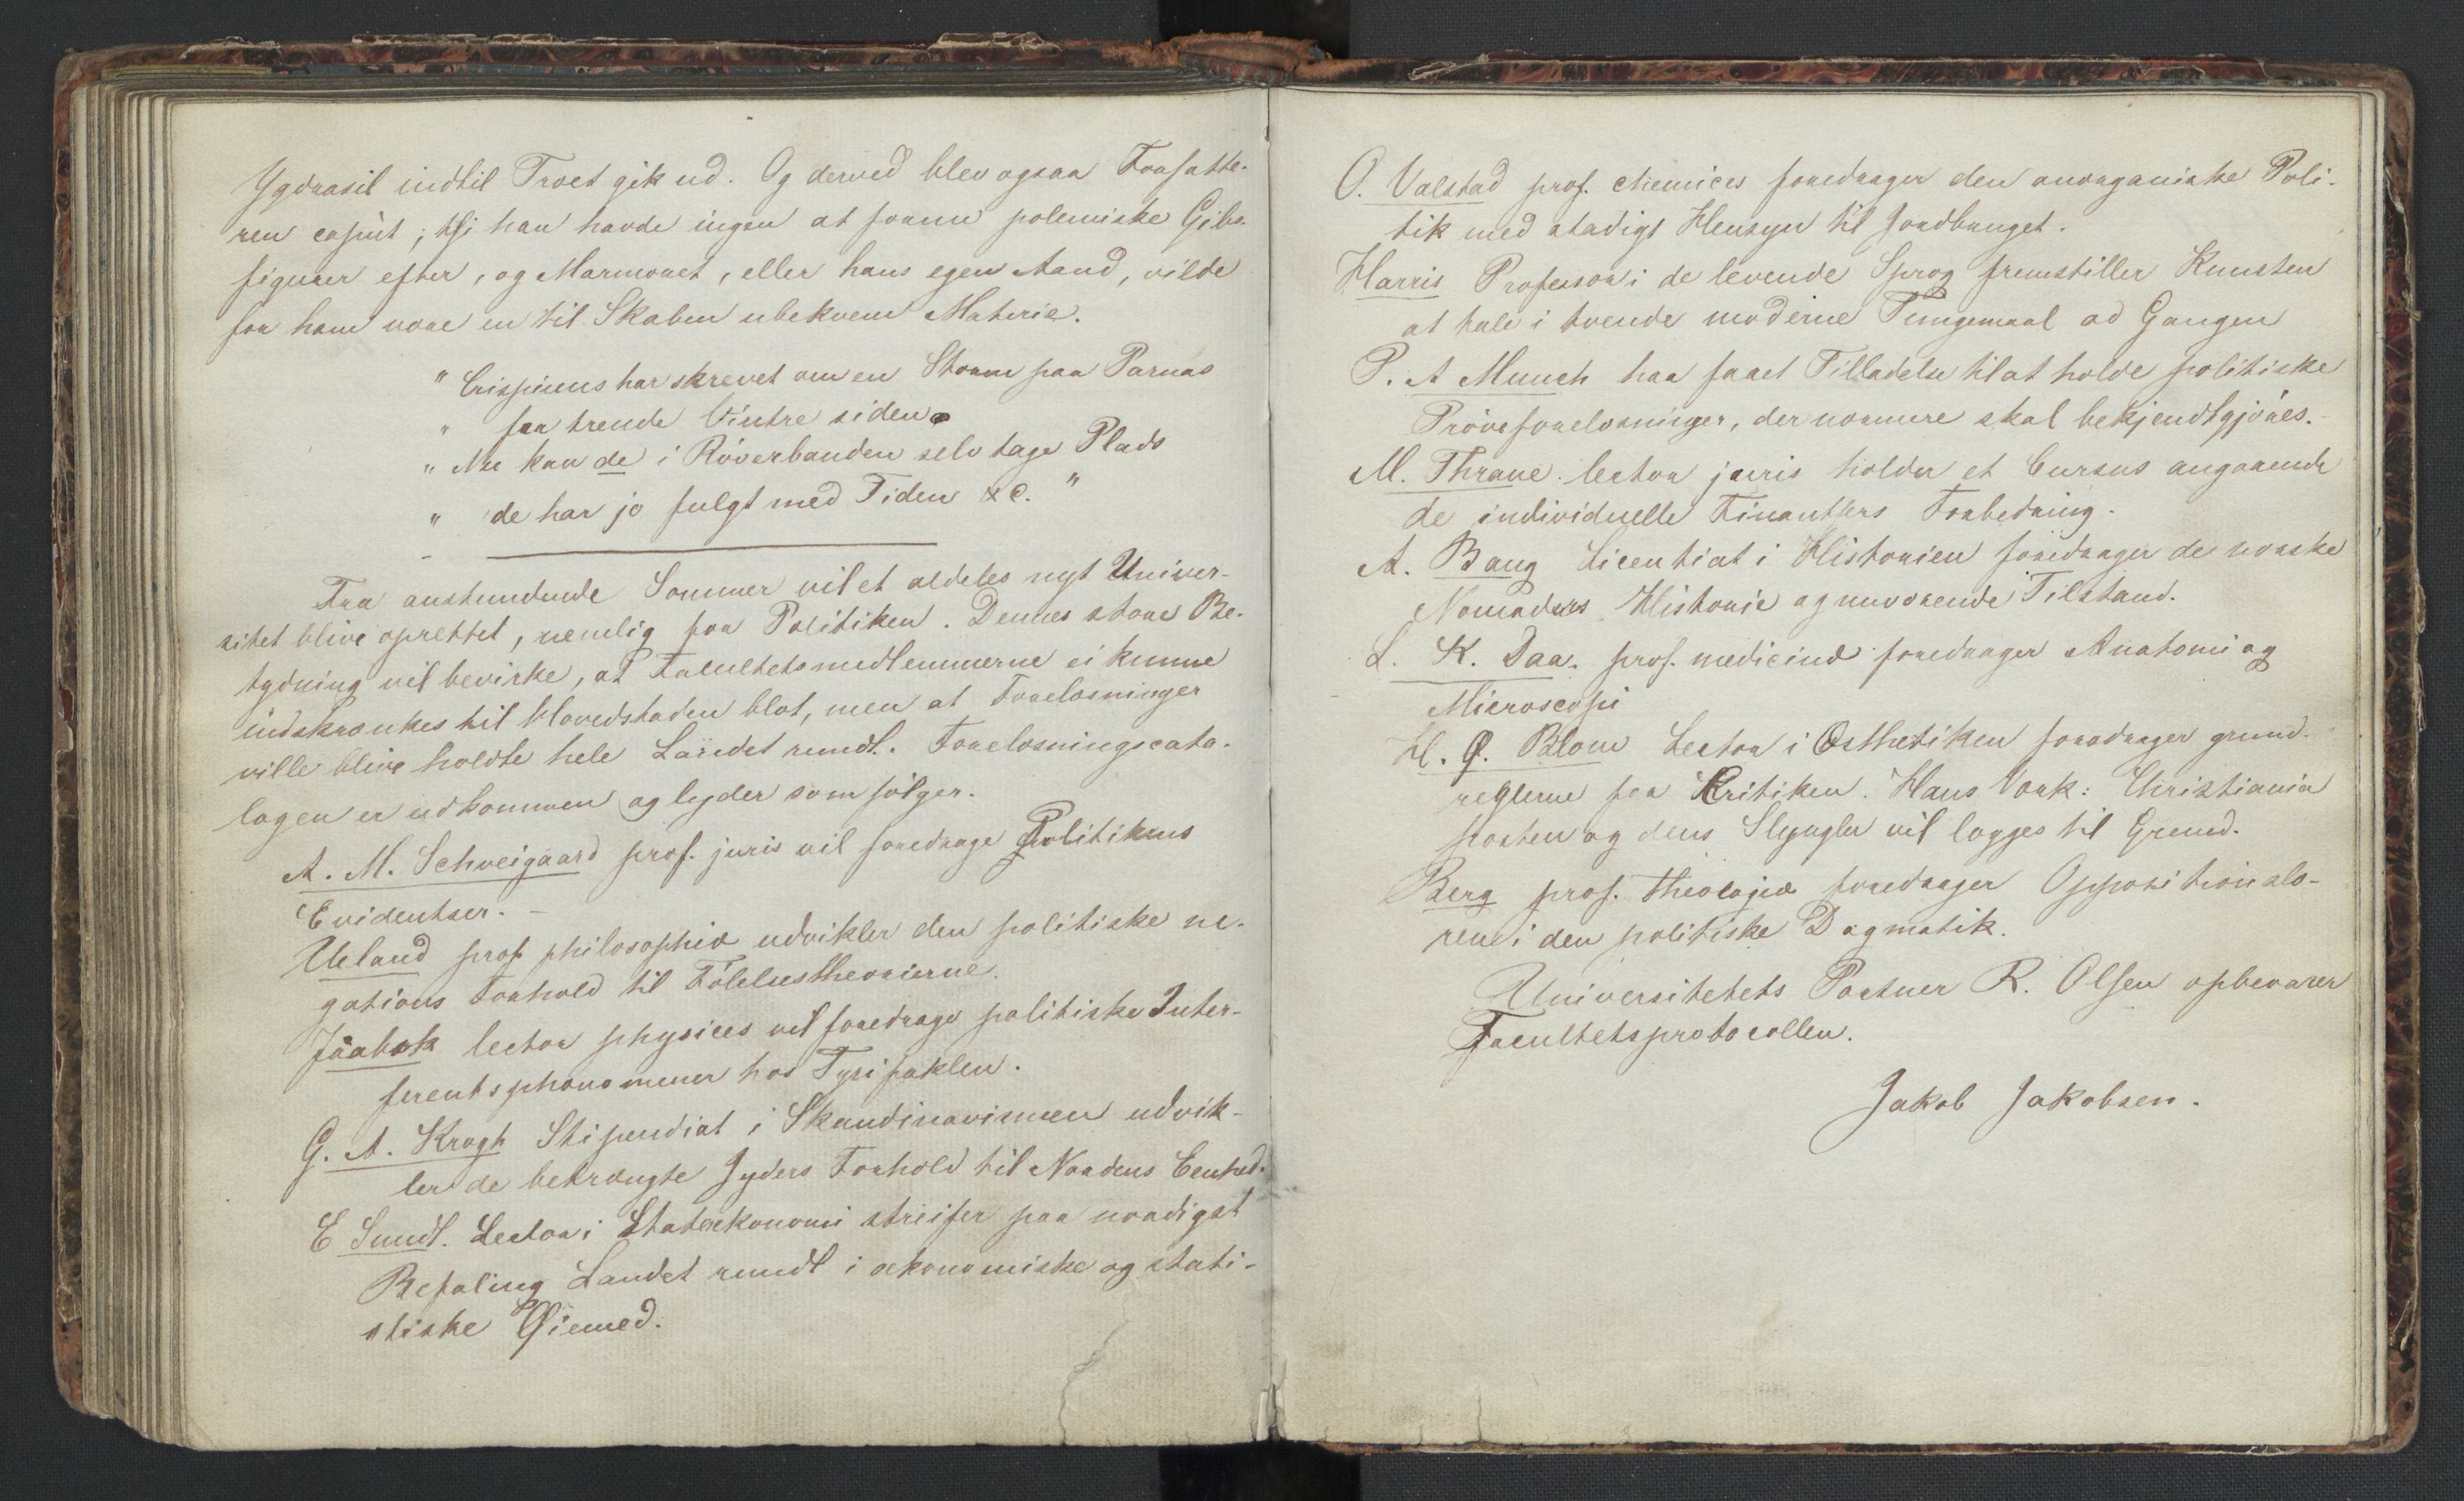 Ygdrasil indtil Træet gik ud. Og derved blev ogsaa Forfatte-
ren caput; thi han havde ingen at forme polemiske Gibs-
figurer efter, og Marmoret, eller hans egen Aand, vilde
for ham være en til Skaben ubekvem Materie.
" Crispinus har skrevet om en Storm paa Parnas
" for trende Vintre siden
" Nu kan de i Röverbanden selv tage Plads
" de har jo fulgt med Tiden &c. "
Fra anstundende Sommer vil et aldeles nyt Univer-
sitet blive oprettet, nemlig for Politiken. Dennes store Be-
tydning vil bevirke, at Facultetsmedlemmerne ei kunne
indskrænkes til Hovedstaden blot, men at Forelæsninger
ville blive holdte hele Landet rundt. Forelæsningscata-
logen er udkommen og lyder som fölger.
A. M. Schveigaard prof. juris vil foredrage Politikens
Evidentser. –
Ueland prof philosophiæ udvikler den politiske ne-
gations Forhold til Fölelsestheorierne.
Jaabæk lector physices vil foredrage politiske Inter-
ferentsphænomener hos Tyrifaklen.
G. A. Krogh Stipendiat i Skandinavismen udvik-
ler de betrængte Jyders Forhold til Nordens Eenhed.
E Sundt. Lector i Statsökonomi streifer paa naadigst
Befaling Landet rundt i ækonomiske og stati-
stiske Öiemed.
O. Valstad prof. chemices foredrager den anorganiske Poli-
tik med stadigt Hensyn til Jordbunget.
Harris Professor i de levende Sprog fremstiller Kunsten
at tale i tvende moderne Tungemaal ad Gangen
P. A Munch har faaet Tilladelse til at holde politiske
Pröveforelæsninger, der nærmere skal bekjendtgjöres.
M. Thrane. lector juris holder et Cursus angaaende
de individuelle Finantsers Forbedring.
A. Bang Licentiat i Historien foredrager de norske
Nomaders Historie og nuværende Tilstand.
L. K. Daa. prof. medicinæ foredrager Anatomi og
Microscopi
H. Ö. Blom Lector i Æsthetiken foredrager grund-
reglerne for Kritiken. Hans Værk: Christiania
posten og dens Slyngler vil lægges til Grund.
Berg prof. theologiæ foredrager Oppositionslæ-
rene i den politiske Dogmatik.
Universitetets Portner R. Olsen opbevarer
Facultetsprotocollen.
Jakob Jakobsen.